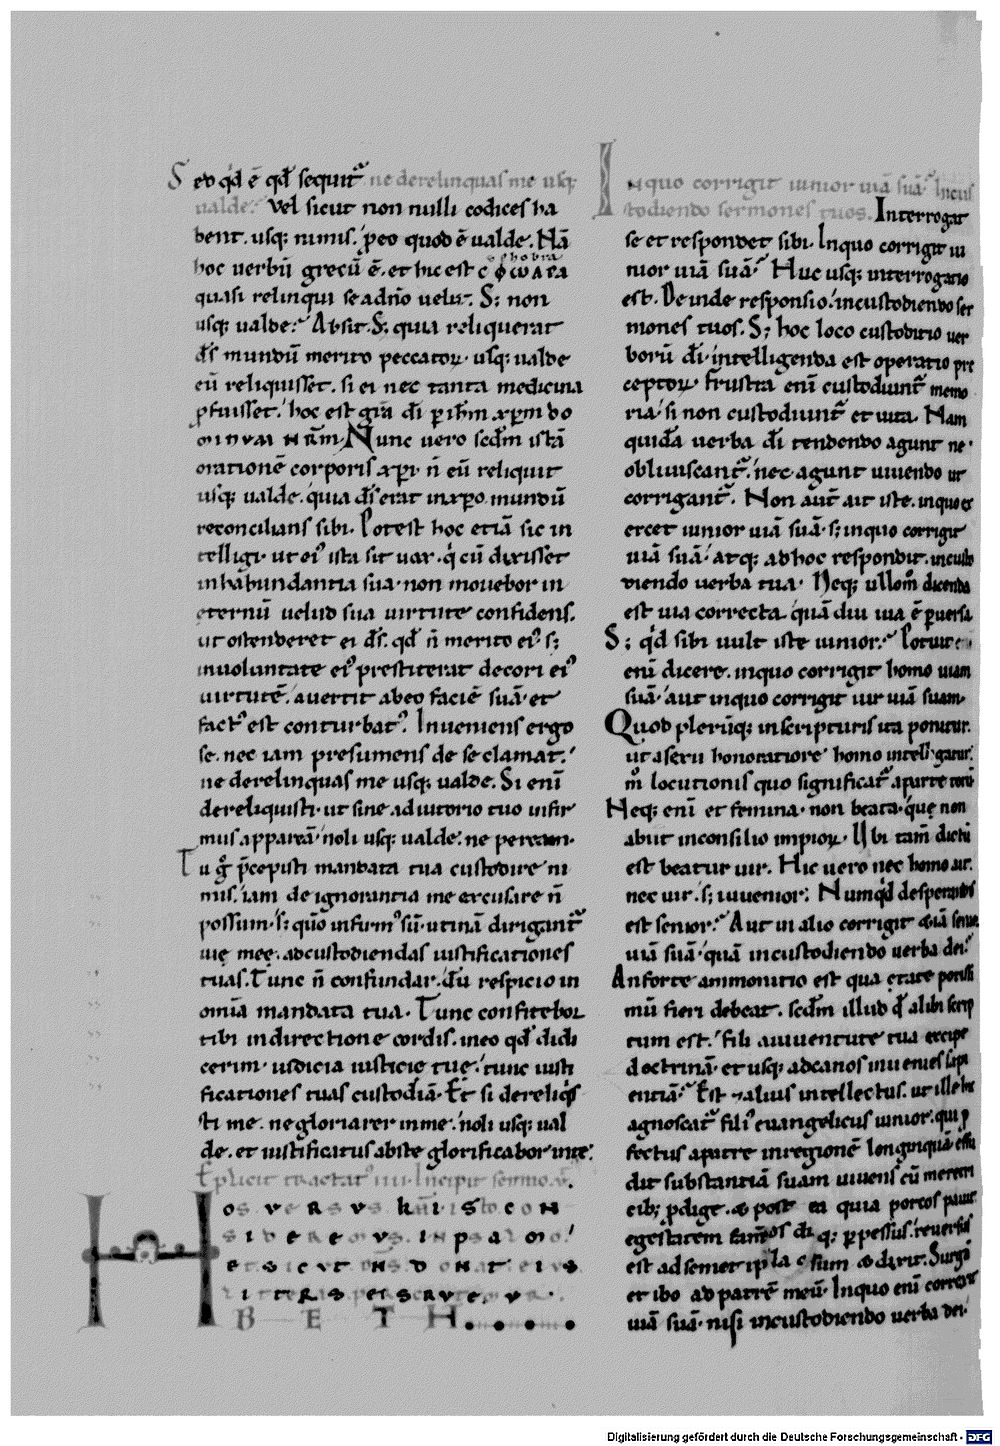 Sed q'd ē qđ sequit̄ ne derelinquas me usq;
ualde. Vel sicut non nulli codices ha
bent. usq; nimis. peo quod ē ualde. Nā
hoc uerbū grecū ē. et hic est
quasi relinqui se a dño uelit. S; non
usq; ualde. Absit. S; quia reliquerat
đs mundū merito peccatoꝝ. usq; ualde
eū reliquisset. si ei nec tanta medicina
ꝓfuisset. hoc est gr̄a đi ꝑ ihm xp̄m do
minum nr̄m. Nunc uero scđm istā
orationē corporis xpi n̄ eū reliquit
usq; ualde. quia đs erat in xpo. mundū
reconcilians sibi. Potest hoc etiā sic in
telligi. ut ei' ista sit uox. q' cū dixisset
in habundantia sua. non mouebor in
eternū uelud sua uirtute confidens.
ut ostenderet ei đs. qđ n̄ merito ei' s;
in uoluntate ei' prestiterat decori ei'
uirtutē. auertit ab eo faciē suā. et
fact' est conturbat'. Inueniens ergo
se. nec iam presumens de se clamat.
ne derelinquas me usq; ualde. Si enī
dereliquisti. ut sine adiutorio tuo infir
mus appareā. noli usq; ualde. ne peream.
Tu g° p̄cepisti mandata tua custodire ni
mis. iam de ignorantia me excusare n̄
possum. s; quō infirm' sū. utinā dirigant̄
uię męę. ad custodiendas iustificationes
tuas. Tunc n̄ confundar. dū respicio in
omīa mandata tua. Tunc confitebor
tibi in directione cordis. in eo qđ didi
cerim. iudicia iusticie tuę. tunc iusti
ficationes tuas custodiā. Et si dereliq'
sti me. ne gloriarer in me. noli usq; ual
de. et iustificatus abs te glorificabor in te.
Explicit tractat' Incipit sermo
Hos versvs
siderem' in psalmo
et sicut donat eius
BETH
In quo corrigit iunior uiā suā. In cus
todiendo sermones tuos. Interrogat
se et respondet sibi. In quo corrigit iu
nior uiā suā. Huc usq; interrogatio
est. Deinde responsio. in custodiendo ser
mones tuos. S; hoc loco custoditio uer
borū đi. intelligenda est operatio pre
ceptoꝝ. Frustra enī custodiunt̄ memo
ria. si non custodiunt̄ et uita. Nam
quidā uerba đi tendendo agunt ne
obliuiscant̄. nec agunt uiuendo ut
corrigant̄. Non aūt ait iste. in quo ex
ercet iunior uiā suā. s; in quo corrigit
uiā suā. atq; ad hoc respondit. in custo
diendo uerba tua. Neq; ullom̄ dicenda
est uia correcta quā diu uia ē ꝑuersa
S; q'd sibi uult iste iunior. Potuit
enī dicere. in quo corrigit homo uiam
suā. aut in quo corrigit uir uiā suam.
Quod plerūq; in scripturis ita ponitur.
ut a sexu honoratiore homo intelligatur.
m° locutionis quo significat̄ a parte totū
Neq; enī et femina. non beata. que non
abiit in consilio impioꝝ. Ubi tam̄ dictū
est beatus uir. Hic uero nec homo ait.
nec uir. s; iuuenior. Numq'd desperandus
est senior. Aut in alio corrigit uiā senior
uiā suā. quā in custodiendo uerba dei.
An forte ammonitio est qua ętate potissi
mū fieri debeat. scđm illud qđ alibi scrip
tum est. fili a iuuentute tua excipe
doctrinā. et usq; ad canos inuenies sapi
entiā. Est et alius intellectus. ut ille hic
agnoscat̄ fili' euangelicus iunior. qui ꝓ
fectus a patre in regionē longinquā effu
dit substantiā suam uiuens cū meretri
cib; ꝓdige. et post ea quia porcos pauit
egestatem
est ad semet ipsum et dixit. Surgā
et ibo ad patrē meū. In quo enī correxit
uiā suā. nisi in custodiendo uerba dei.
Digitalisierung gefördert durch die Deutsche Forschungsgemeinschaft - DFG